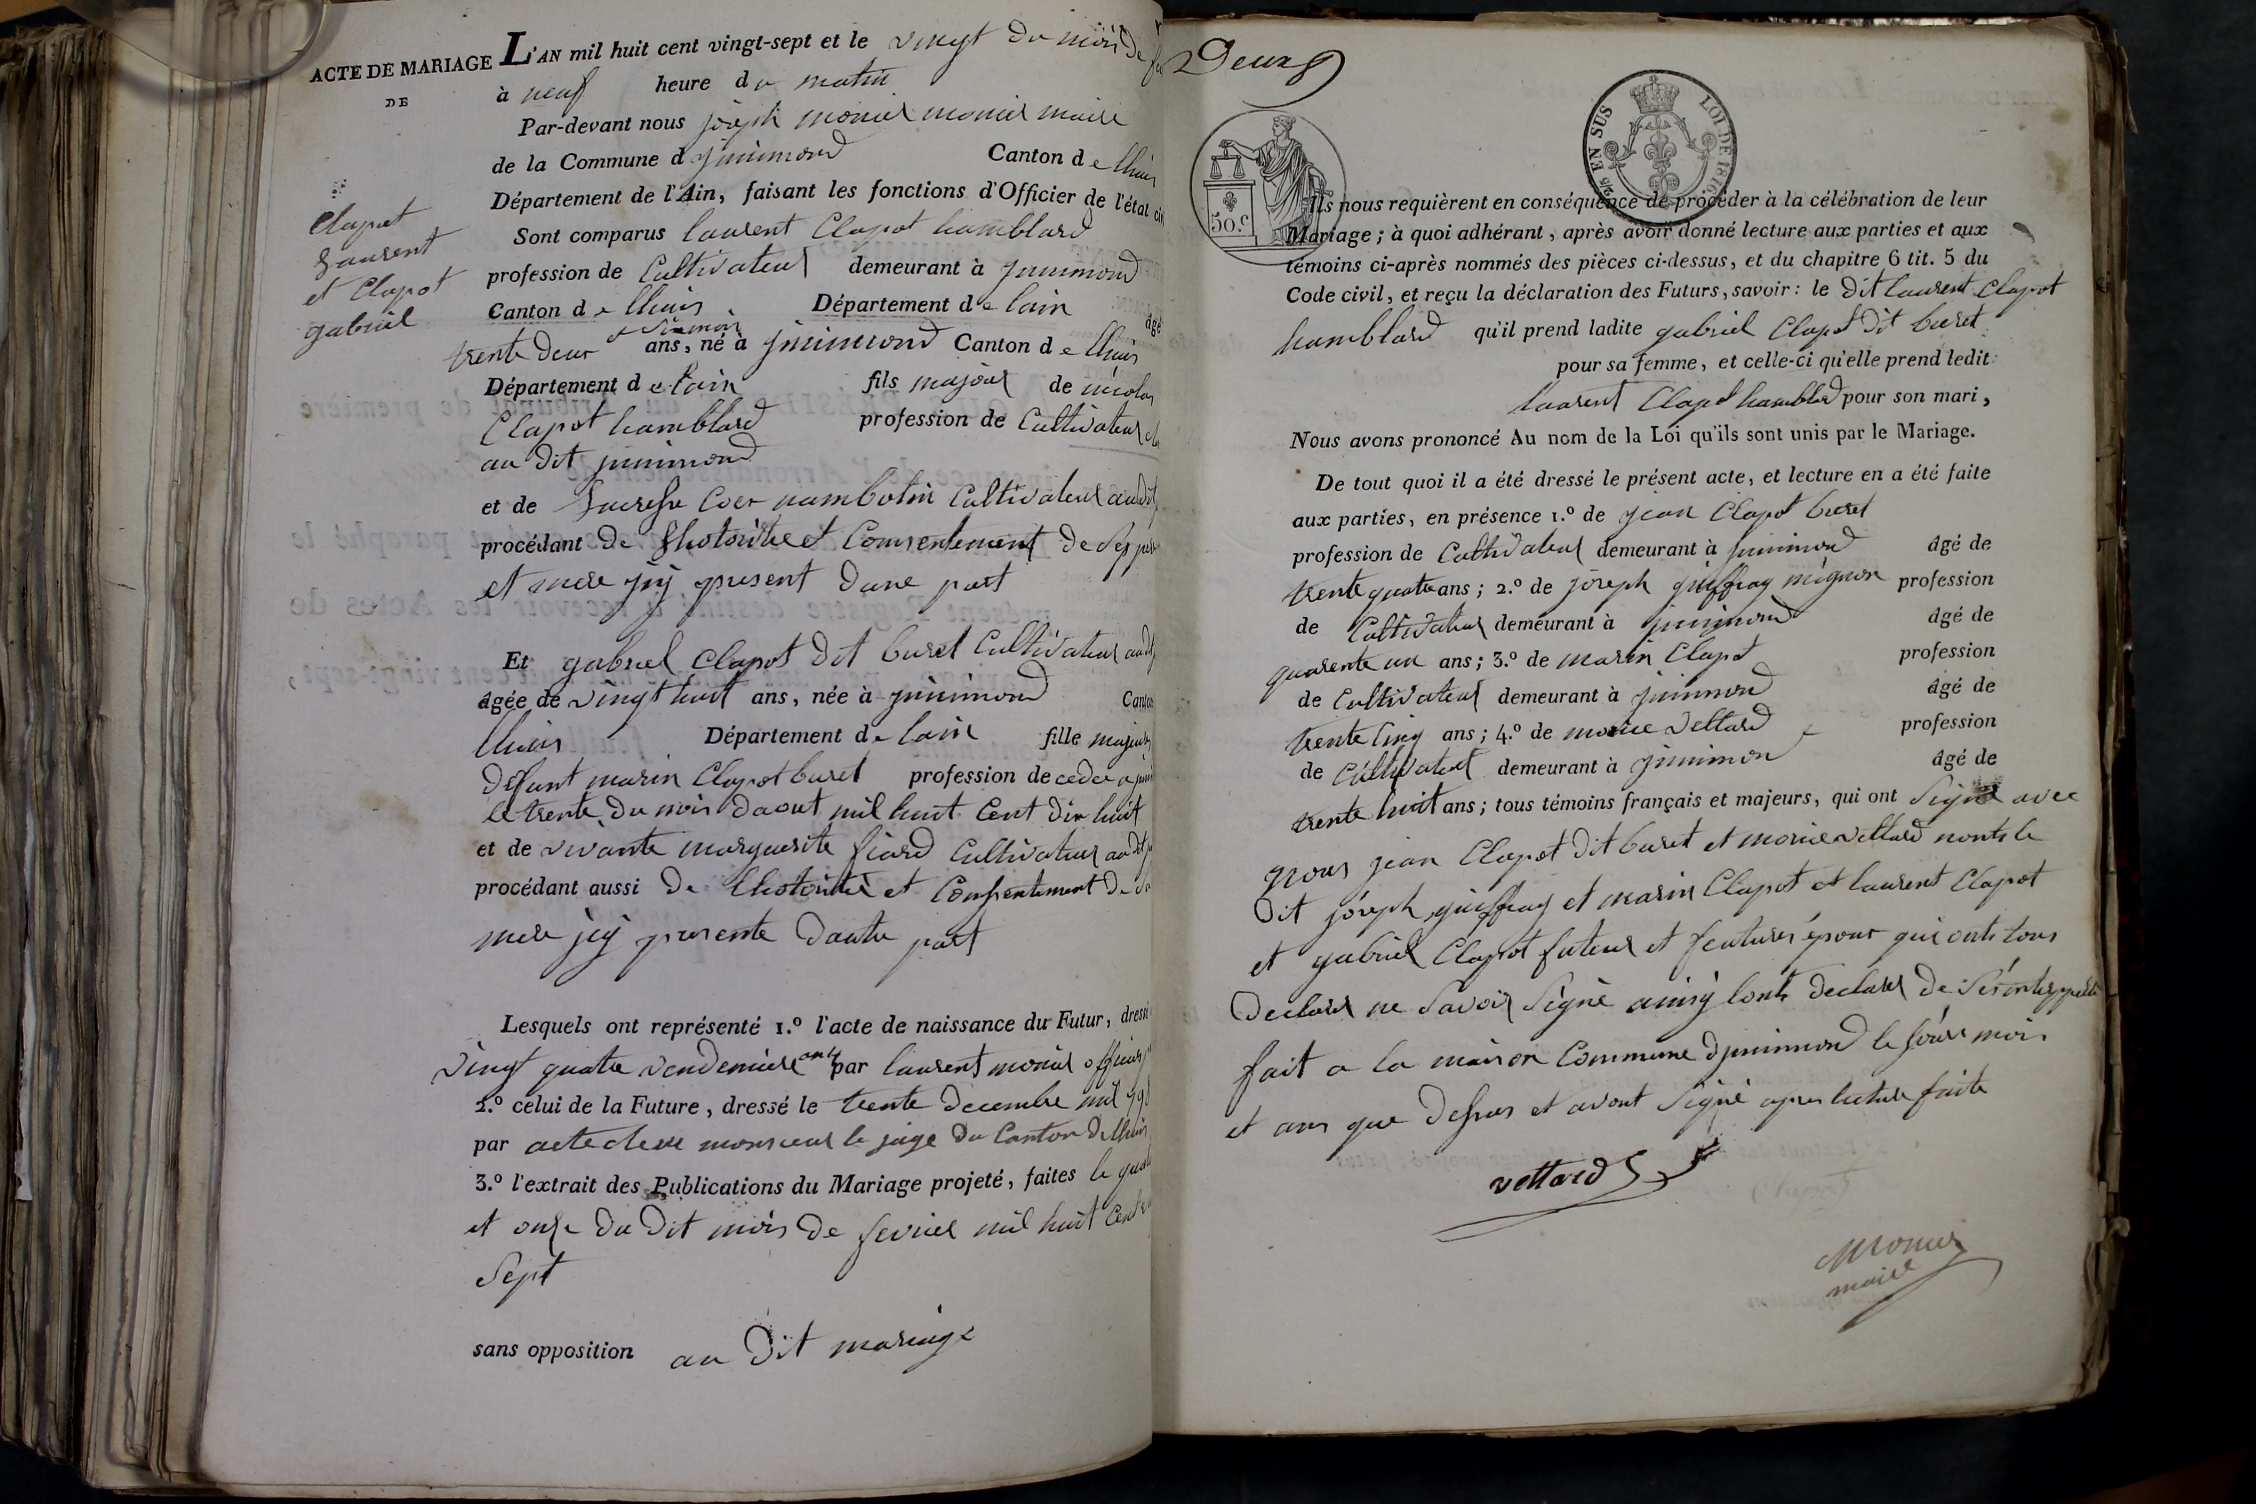 ACTE DE MARIAGE
DE
Clapot
Laurent
et Clapot
gabriel
L'AN mil huit cent vingt-sept et le vingt du mois de
à neuf heure du matin
Par-devant nous joseph monier monier maire
de la Commune d jnnimond Canton de lhuis
Département de l'Ain, faisant les fonctions d'Officier de l'état
Sont comparus laurent Clapot hamblard
profession de Cultivateur demeurant à jnnimond
Canton de lhuis Département de lain âgé
trente deux et six mois ans, né à jnnimond Canton de lhuis
Département de lain fils majeur de nicolas
Clapot hamblard profession de Cultivateur
au dit jnnimond
et de nambotin Cultivateur audit
procédant de lhotorité et Consentement de ses
et mere jcy present dune part
Et gabriel Clapot dit buret Cultivateur
âgée de vingt huit ans, née à jnnimond
lhuis Département de lain fille majeure
défunt marin Clapot buret profession de
le trente du mois daout mil huit Cent dix huit
et de vivante marguerite fiard Cultivateur
procédant aussi de lhotorité et Consentement de sa
mere jcy presente dautre part
Lesquels ont représenté 1.º l'acte de naissance du Futur, dressé
vingt quatre vendemiere par laurent monier officier
2.º celui de la Future, dressé le trente decembre mil
par acte monsieur le juge du Canton de lhuis
3.º l'extrait des Publications du Mariage projeté, faites le
et onze du dit mois de fevrier mil huit Cent
Sept
sans opposition au dit mariage
Deux
50.c
25 EN SUS LOI DE 1816
Ils nous requièrent en conséquence de procéder à la célébration de leur
Mariage; à quoi adhérant, après avoir donné lecture aux parties et aux
témoins ci-après nommés des pièces ci-dessus, et du chapitre 6 tit. 5 du
Code civil, et reçu la déclaration des Futurs, savoir: le dit laurent Clapot
hamblard qu'il prend ladite gabriel Clapot dit buret
pour sa femme, et celle-ci qu'elle prend ledit
laurent Clapot hamblard pour son mari,
Nous avons prononcé Au nom de la Loi qu'ils sont unis par le Mariage.
De tout quoi il a été dressé le présent acte, et lecture en a été faite
aux parties, en présence 1.º de jean Clapot buret
profession de Cultivateur demeurant à jnnimond âgé de
trente quatre ans; 2.º de joseph guiffray mignon profession
de Cultivateur demeurant à jnnimond âgé de
quarente un ans; 3.º de marin Clapot profession
de Cultivateur demeurant à jnnimond âgé de
trente Cinq ans; 4.º de morice vettard profession
de Cultivateur demeurant à jnnimon âgé de
trente huit ans; tous témoins français et majeurs, qui ont Signé avec
nous jean Clapot dit buret et morice vettard nonts le
dit joseph guiffray et marin Clapot et laurent Clapot
et gabriel Clapot futeur et époux qui onts tous
declarer ne Savoir Signé ainsy lonts declarer de
fait a la maison Commune djnnimond le jour mois
et ans que dessus et avont Signé apres lecture faite
vettard
Monier
maire